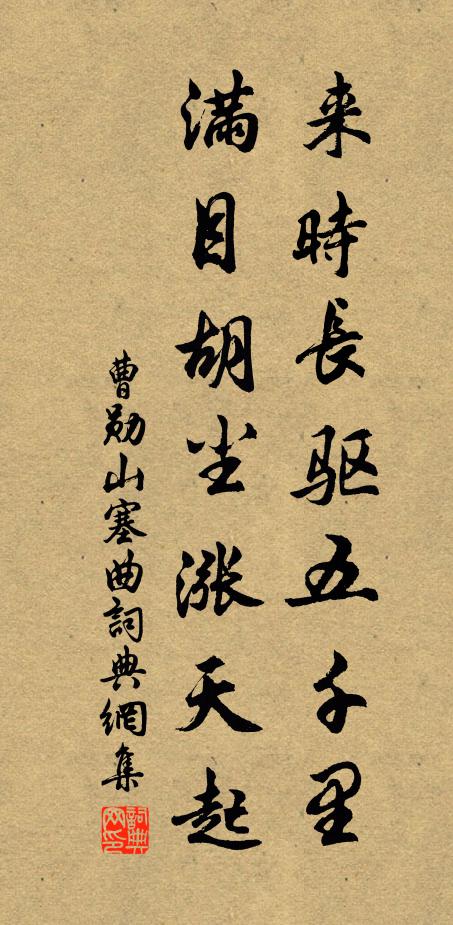 来時長驱五千里
满目胡尘漲天起
曹勛山塞曲詞典網集
詞典網印